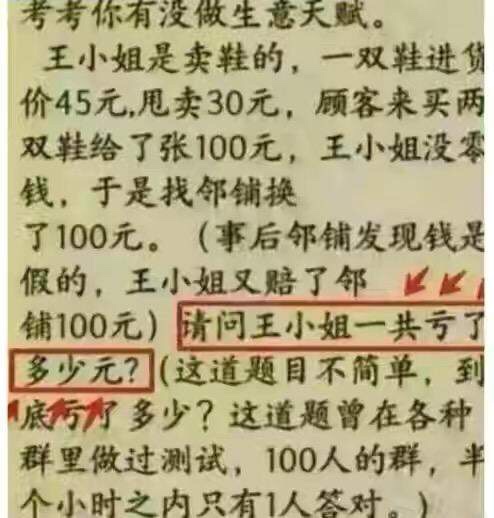 考考你有没做生意天赋。
王小姐是卖鞋的，一双鞋进货
价45元,甩卖30元，顾客来买两
双鞋给了张100元，王小姐没零
钱，于是找邻铺换
了100元。（事后邻铺发现钱是
假的，王小姐又赔了邻
铺100元）请问王小姐一共亏了
多少元?（这道题目不简单，到
底亏了多少？这道题曾在各种
群里做过测试，100人的群，半
个小时之内只有1人答对。）